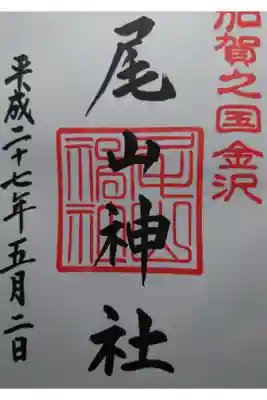 加賀之国金沢
尾山神社
平成二十七年五月二日